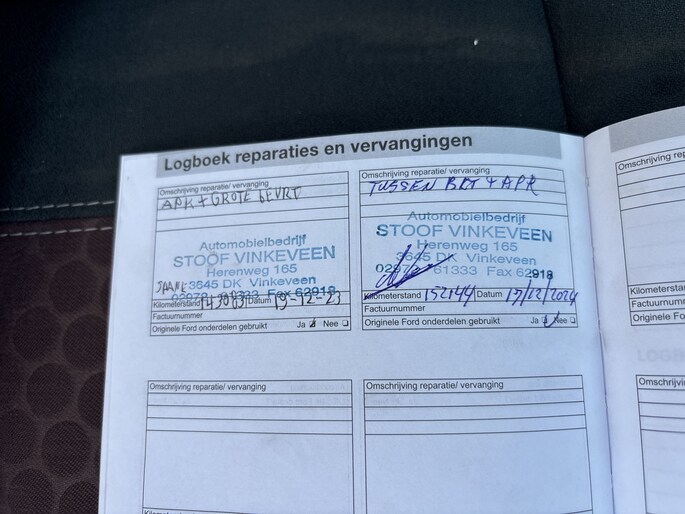 Logboek reparaties en vervangingen
Omschrijving reparatie/ vervanging
APK + GROTE BEURT
Automobielbedrijf
STOOF VINKEVEEN
Herenweg 165
3645 DK Vinkeveen
Fax 62918
Kilometerstand Datum 19-12-23
Factuurnummer
Originele Ford onderdelen gebruikt Ja Nee
Omschrijving reparatie/ vervanging
TUSSEN BRT + APK
Automobielbedrijf
STOOF VINKEVEEN
Herenweg 165
3645 DK Vinkeveen
61333 Fax 62918
Kilometerstand 152144 Datum 17/12/2024
Factuurnummer
Originele Ford onderdelen gebruikt Ja Nee
Omschrijving reparatie/ vervanging
Omschrijving reparatie/ vervanging
Omschrijving rep
Kilometers
Factuurnum
Originele Fo
Omschrijvin